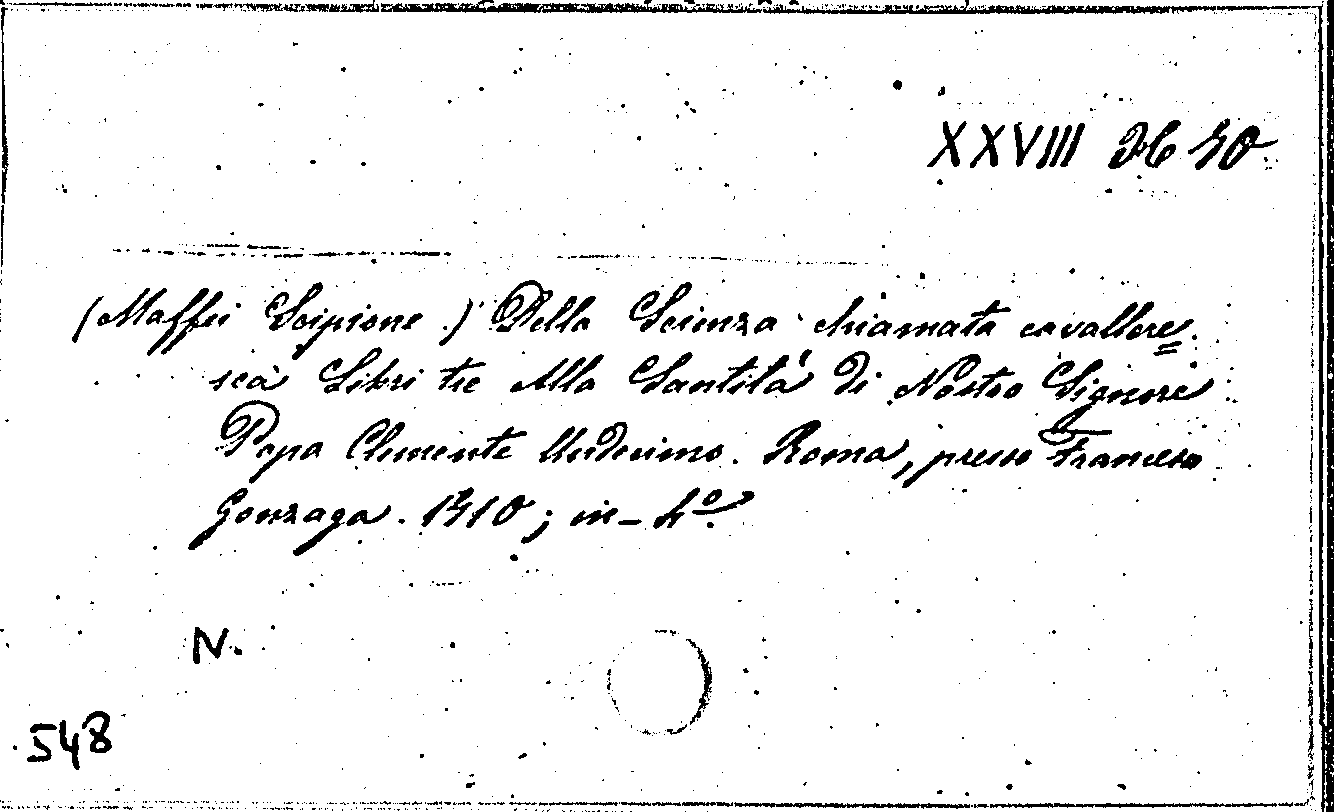 XXVIII D6 40
(Maffei Scipione.) Della Scienza chiamata cavallere=
sca Libri tre Alla Santità di Nostro Signore
Papa Clemente Undecimo. Roma, presso Francesco
Gonzaga. 1710; in-4º.
N.
548